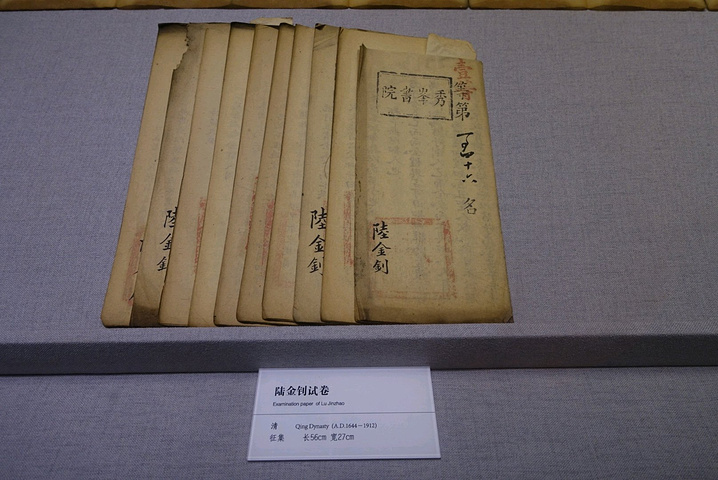 壹等第十六名
秀峯書院
陸金釗
陸金釗
陸金釗
陆金钊试卷
Examination paper of Lu Jinzhao
清 Qing Dynasty (A.D.1644－1912)
征集 长56cm 宽27cm